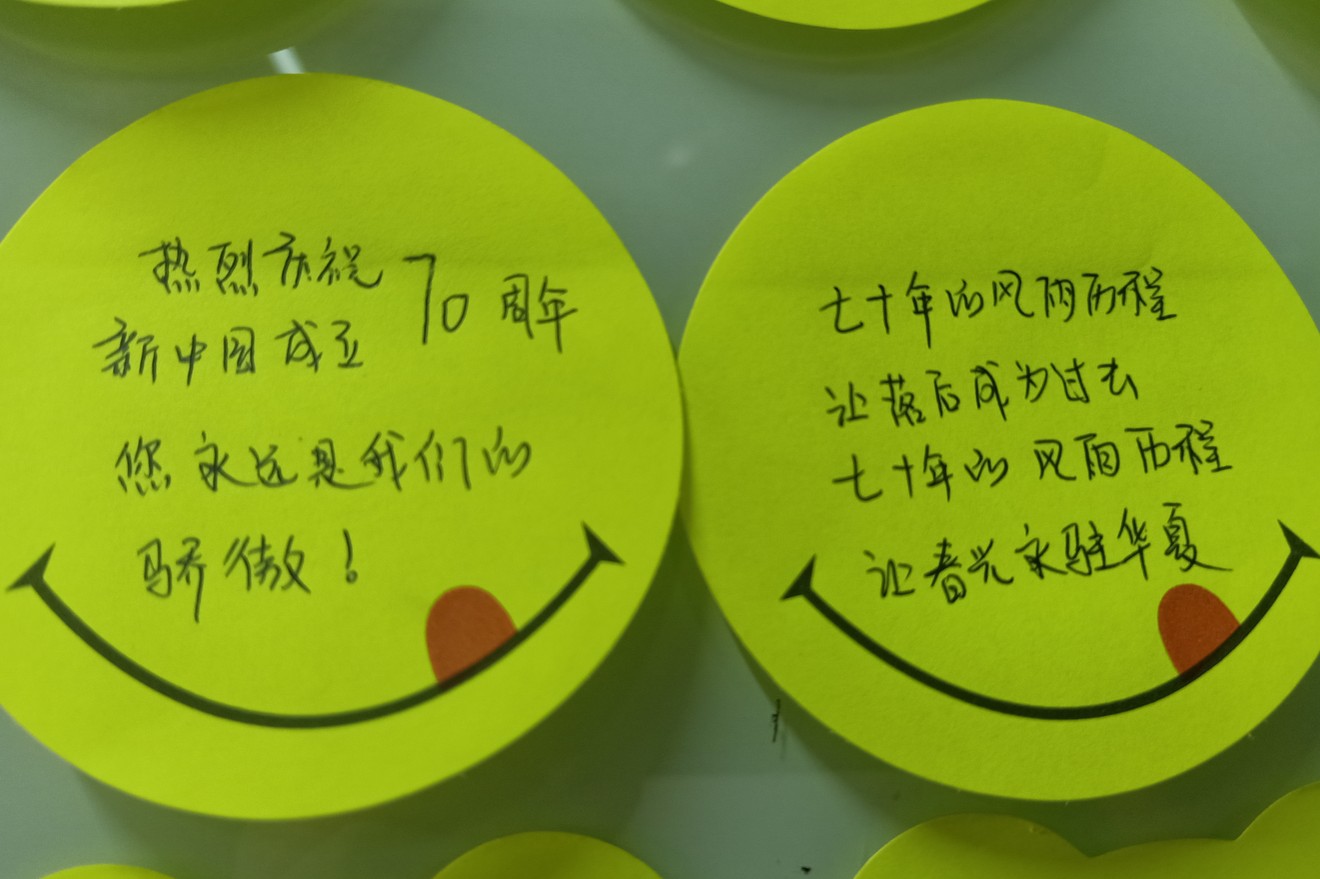 热烈庆祝
新中国成立70周年
您永远是我们的
骄傲!
七十年的风雨历程
让落后成为过去
七十年的风雨历程
让春光永驻华夏